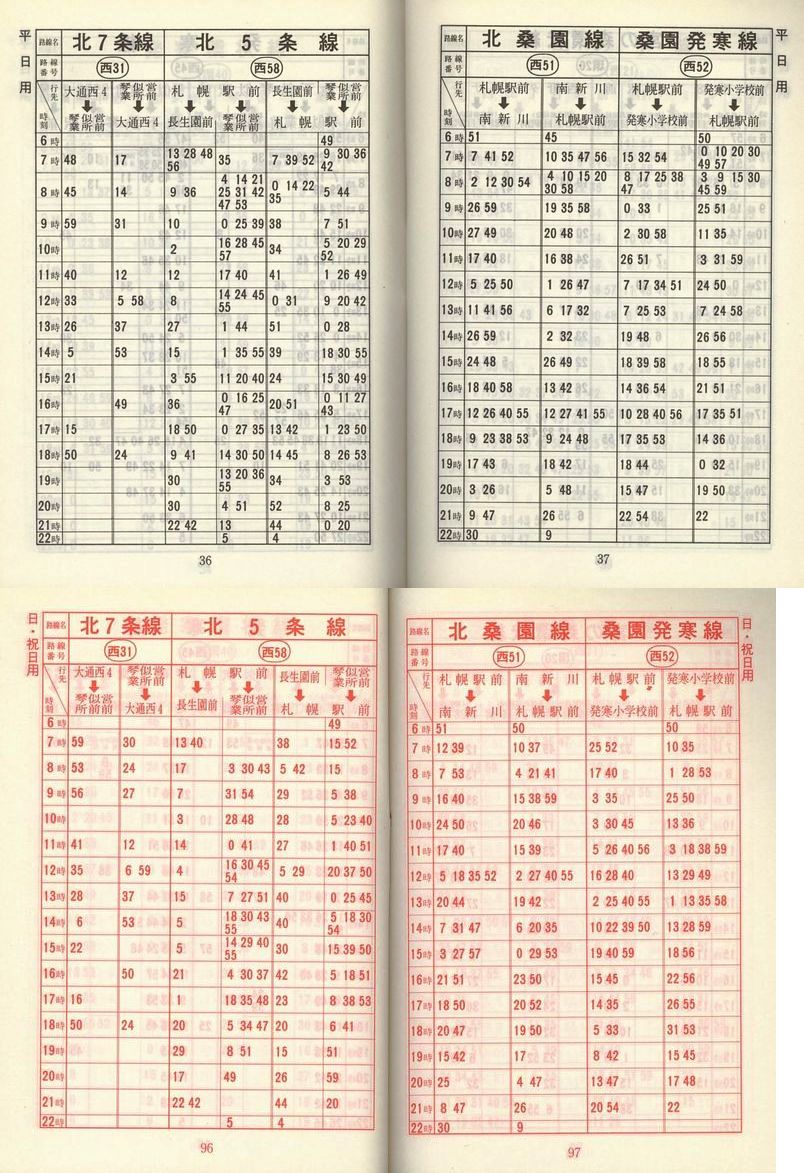 平日用
路線名 北7条線 北5条線
路線番号 西31 西58
行先 大通西4 琴似営業所前 札幌駅前 長生園前 琴似営業所前
時刻 琴似営業所前 大通西4 長生園前 琴似営業所前 札幌駅前
6時 49
7時 48 17 13 28 48 56 35 7 39 52 9 30 36 42
8時 45 14 9 36 4 14 21 25 31 42 47 53 0 14 22 35 5 44
9時 59 31 10 0 25 39 38 7 51
10時 2 16 28 45 57 34 5 20 29 52
11時 40 12 12 17 40 41 1 26 49
12時 33 5 58 8 14 24 45 55 0 31 9 20 42
13時 26 37 27 1 44 51 0 28
14時 5 53 15 1 35 55 39 18 30 55
15時 21 3 55 11 20 40 24 15 30 49
16時 49 36 0 16 25 47 20 51 0 11 27 43
17時 15 18 50 0 27 35 13 42 1 23 50
18時 50 24 9 41 14 30 50 14 45 8 26 53
19時 30 13 20 36 55 34 3 53
20時 30 4 51 52 8 25
21時 22 42 13 44 0 20
22時 5 4
36
平日用
路線名 北桑園線 桑園発寒線
路線番号 西51 西52
行先 札幌駅前 南新川 札幌駅前 発寒小学校前
時刻 南新川 札幌駅前 発寒小学校前 札幌駅前
6時 51 45 50
7時 7 41 52 10 35 47 56 15 32 54 0 10 20 30 49 57
8時 2 12 30 54 4 10 15 20 30 58 8 17 25 38 47 3 9 15 30 45 59
9時 26 59 19 35 58 0 33 25 51
10時 27 49 20 48 2 30 58 11 35
11時 17 40 16 38 26 51 3 31 59
12時 5 25 50 1 26 47 7 17 34 51 24 50
13時 11 41 56 6 17 32 7 25 53 7 24 58
14時 26 59 2 32 19 48 26 56
15時 24 48 26 49 18 39 58 18 55
16時 18 40 58 13 42 14 36 54 21 51
17時 12 26 40 55 12 27 41 55 10 28 40 56 17 35 51
18時 9 23 38 53 9 24 48 17 35 53 14 36
19時 17 43 18 42 18 44 0 32
20時 3 26 5 48 15 47 19 50
21時 9 47 26 22 54 22
22時 30 9
37
日・祝日用
路線名 北7条線 北5条線
路線番号 西31 西58
行先 大通西4 琴似営業所前 札幌駅前 長生園前 琴似営業所前
時刻 琴似営業所前 大通西4 長生園前 琴似営業所前 札幌駅前
6時 49
7時 59 30 13 40 38 15 52
8時 53 24 17 3 30 43 5 42 15
9時 56 27 7 31 54 29 5 38
10時 3 28 48 28 5 23 40
11時 41 12 14 0 41 27 1 40 51
12時 35 6 59 4 16 30 45 54 5 29 20 37 50
13時 28 37 15 7 27 51 40 0 25 45
14時 6 53 5 18 30 43 55 40 5 18 30 54
15時 22 5 14 29 40 55 30 15 39 50
16時 50 21 4 30 37 42 5 18 51
17時 16 1 18 35 48 23 8 38 53
18時 50 24 20 5 34 47 20 6 41
19時 29 8 51 15 51
20時 17 49 26 59
21時 22 42 44 20
22時 5 4
96
日・祝日用
路線名 北桑園線 桑園発寒線
路線番号 西51 西52
行先 札幌駅前 南新川 札幌駅前 発寒小学校前
時刻 南新川 札幌駅前 発寒小学校前 札幌駅前
6時 51 50 50
7時 12 39 10 37 25 52 10 35
8時 7 53 4 21 41 17 40 1 28 53
9時 16 40 15 38 59 3 35 25 50
10時 24 50 20 46 3 30 45 13 36
11時 17 40 15 39 5 26 40 56 3 18 38 59
12時 5 18 35 52 2 27 40 55 16 28 40 13 29 49
13時 20 44 19 42 2 25 40 55 1 13 35 58
14時 7 31 47 6 20 35 10 22 39 50 13 28 59
15時 3 27 57 0 29 53 19 40 59 18 56
16時 21 51 23 50 15 45 22 56
17時 18 50 20 52 14 35 26 55
18時 20 47 19 50 5 33 31 53
19時 15 42 17 8 42 15 45
20時 25 4 47 13 47 17 48
21時 8 47 26 20 54 22
22時 30 9
97